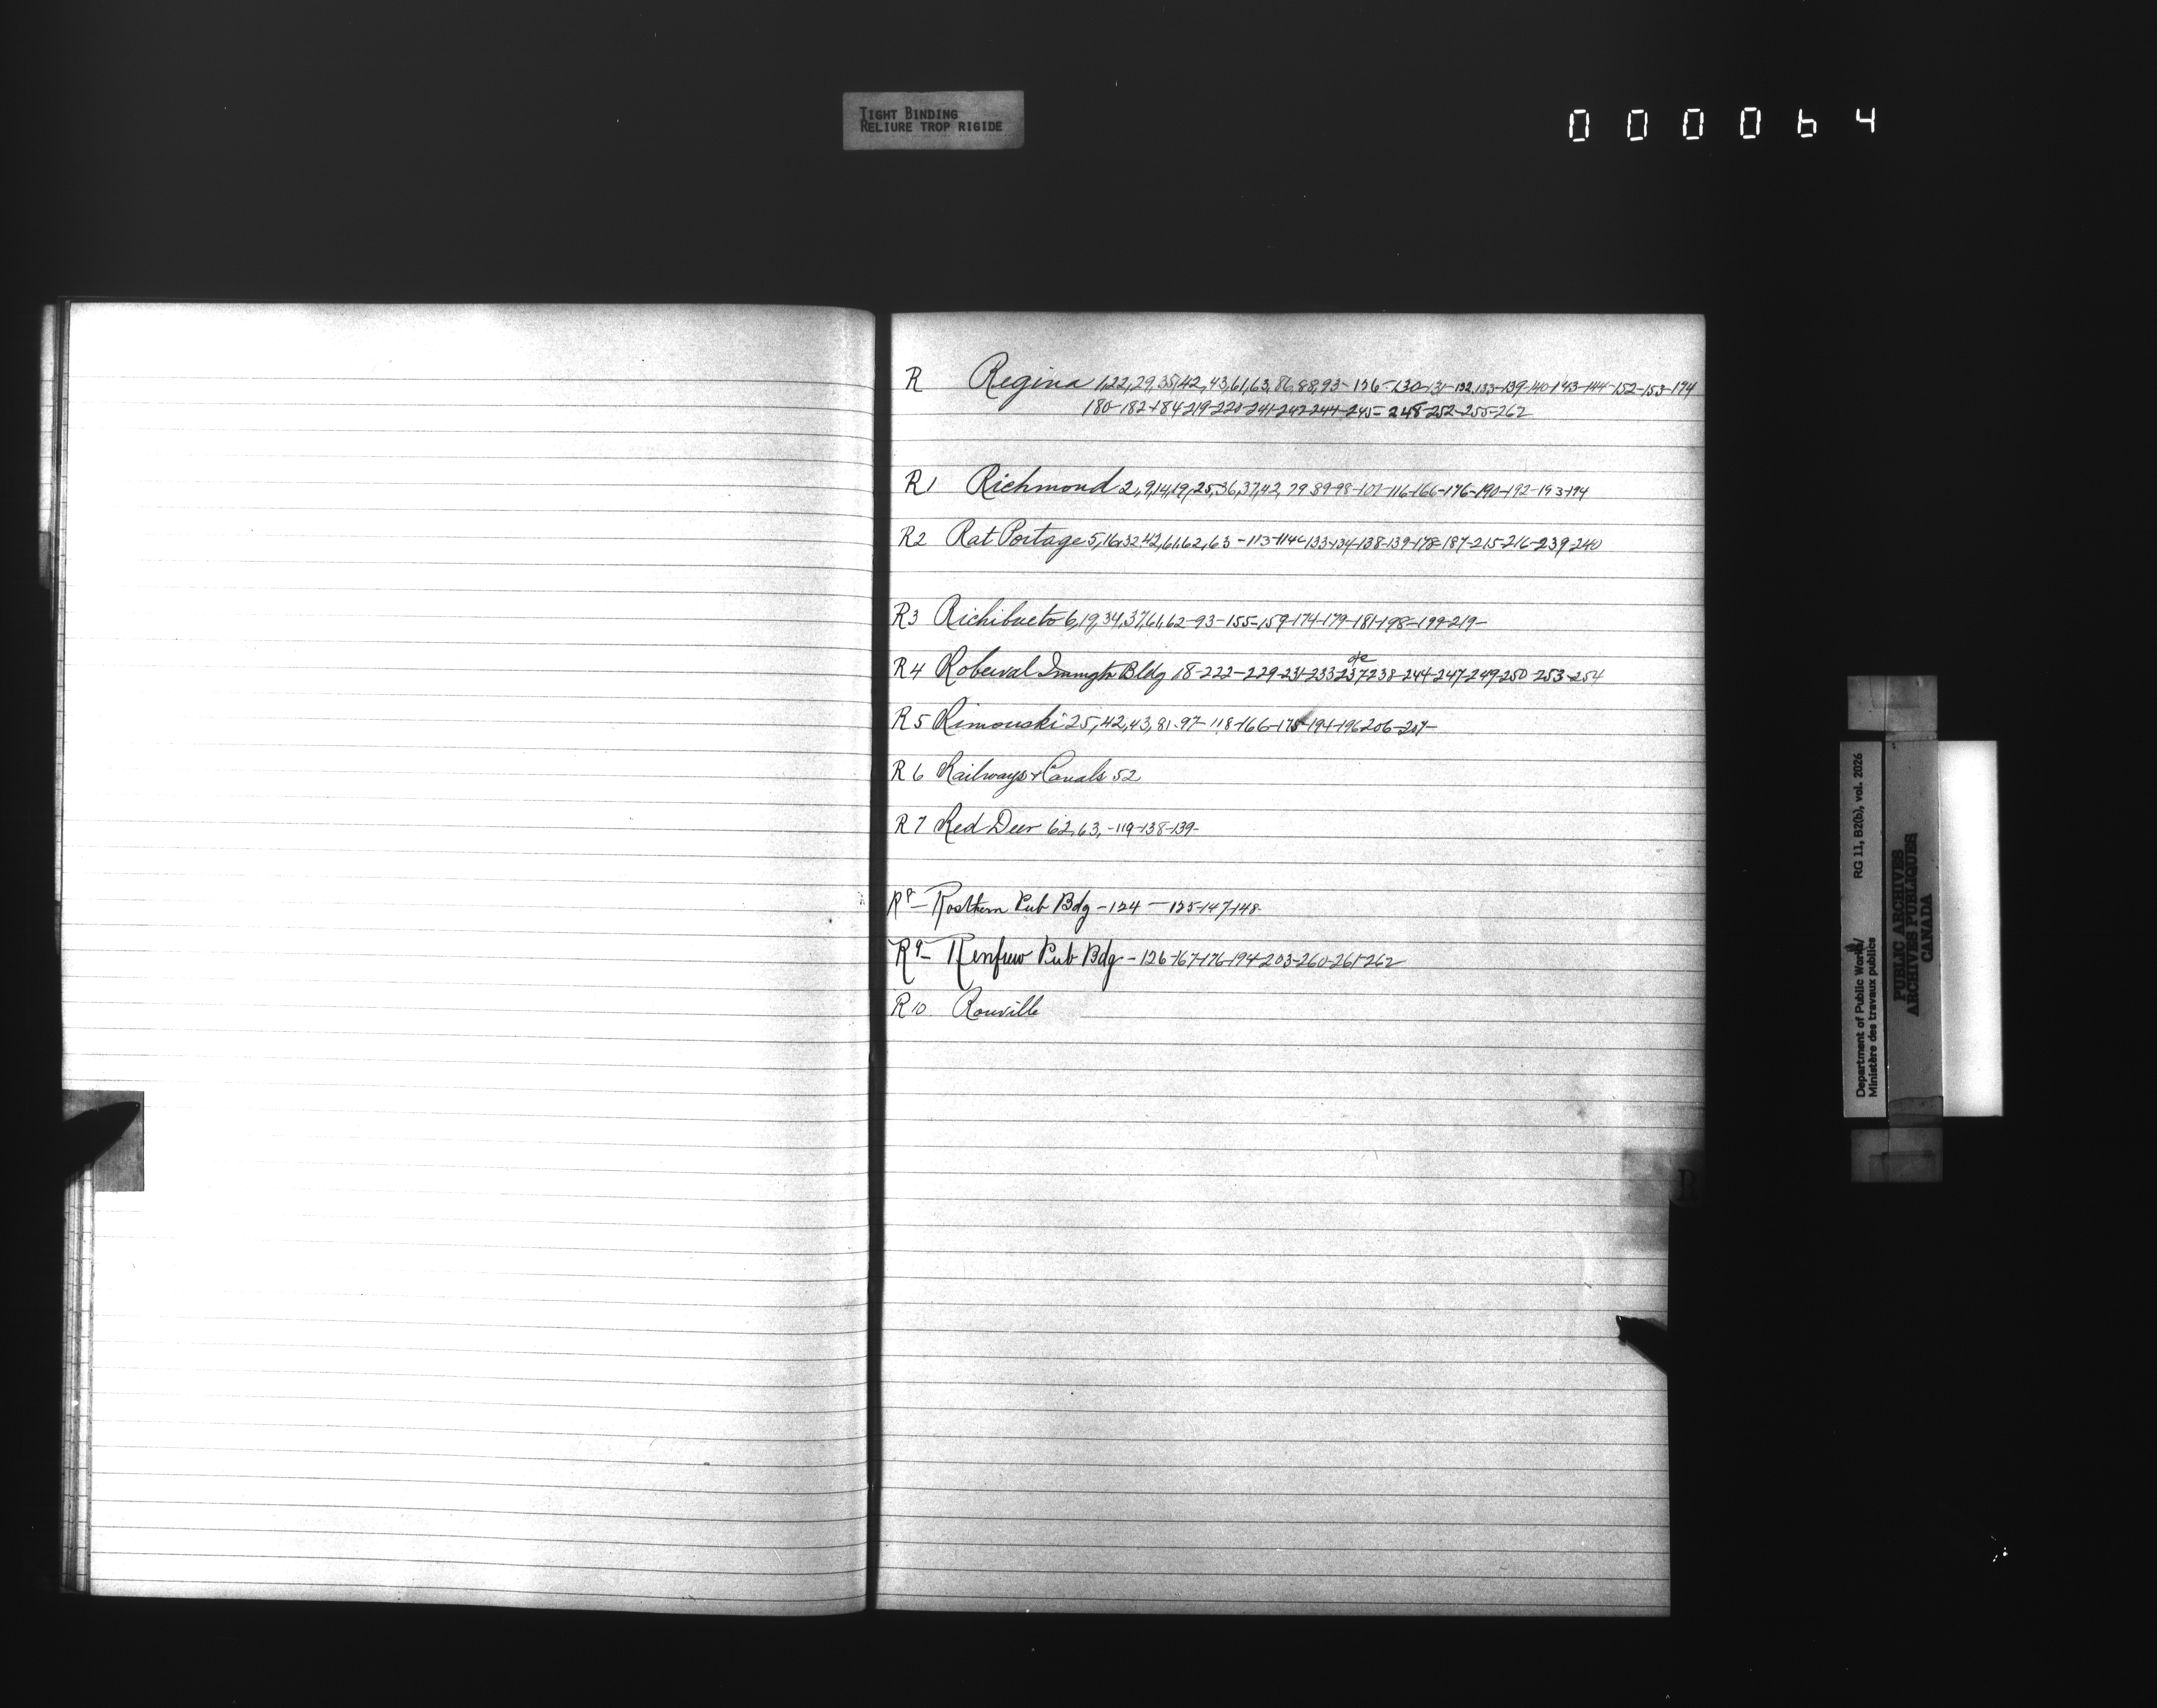 TIGHT BINDING
RELIURE TROP RIGIDE
000064
R Regina 1,22,29,35,42,43,61,63,86,88,93-126-130-131-132,133-139-140-143-144-152-153-174
180-182-184-219-220-241-242-244-245-248-252-255-262
R1 Richmond 2,9,14,19,25,36,37,42,79 89-98-107-116-166-176-190-192-193-194
R2 Rat Portage 5,16,32,42,61,62,63-113-114-133-134-138-139-178-187-215-216-239-240
R3 Richibucto 6,19,34,37,61,62-93-155-159-174-179-181-198-199-219-
R4 Roberval Immgtn Bldg 18-222-229-231-233-237-238-244-247-249-250-253-254
R5 Rimouski 25,42,43,81-97-118-166-175-194-196-206-207-
R6 Railways & Canals 52
R7 Red Deer 62,63,-119-138-139-
R8- Rosthern Pub Bdg-124-125-147-148-
R9- Renfrew Pub Bdg-126-167-176-194-203-260-261-262
R10 Rouville
R
Department of Public Works/ RG 11, B2(b), vol. 2026
Ministère des travaux publics
PUBLIC ARCHIVES
ARCHIVES PUBLIQUES
CANADA